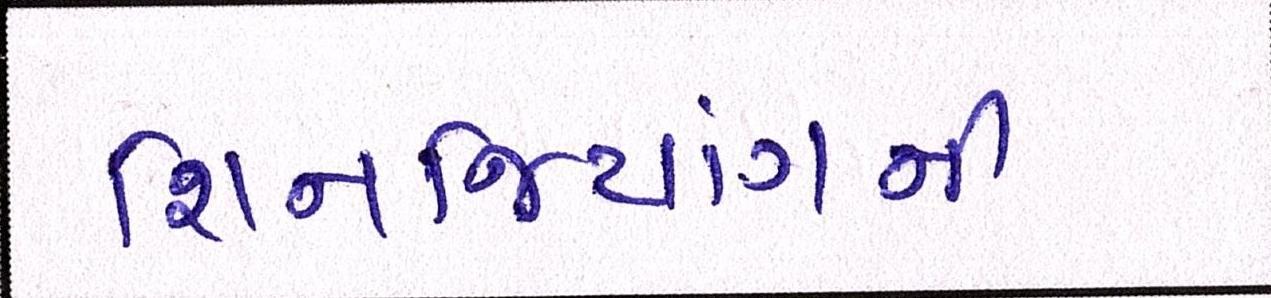 શિનજિયાંગની